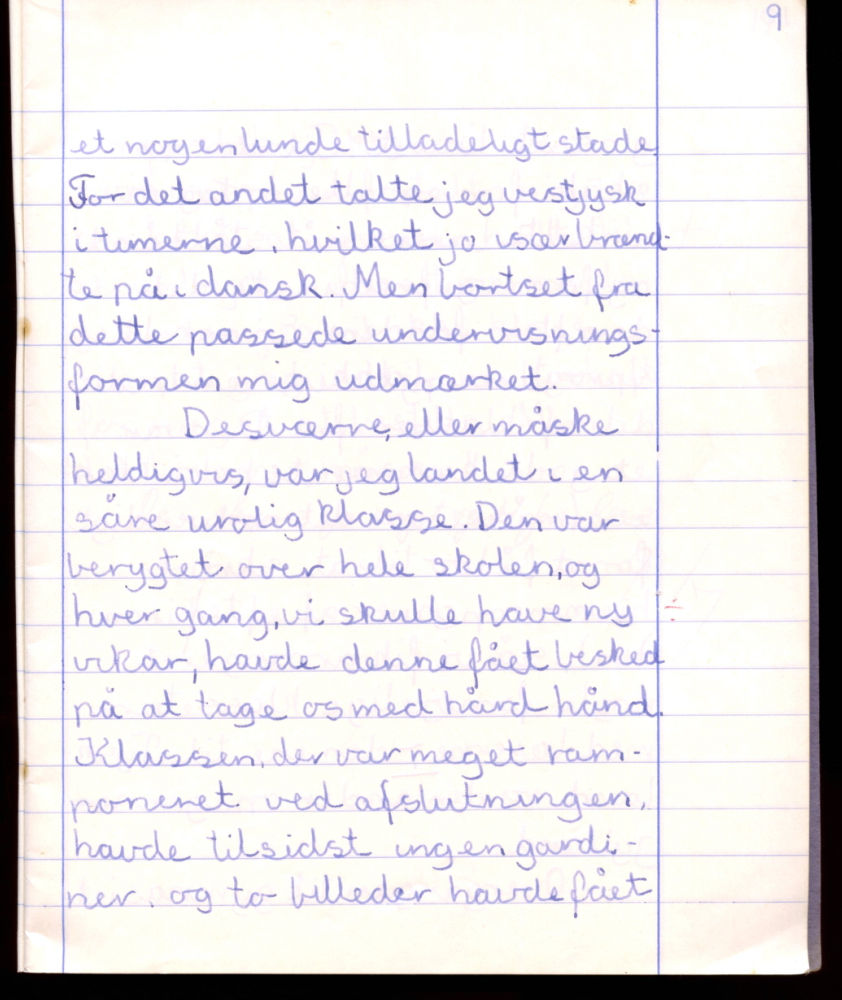 9
et nogenlunde tilladeligt stade
For det andet talte jeg vestjysk
i timerne, hvilket jo især brænd-
te på i dansk. Men bortset fra
dette passede undervisnings-
formen mig udmærket.
Desværre, eller måske
heldigvis, var jeg landet i en
såre urolig klasse. Den var
berygtet over hele skolen, og
hver gang, vi skulle have ny ÷
vikar, havde denne fået besked
på at tage os med hård hånd.
Klassen, der var meget ram-
poneret ved afslutningen,
havde tilsidst ingen gardi-
ner, og to billeder havde fået